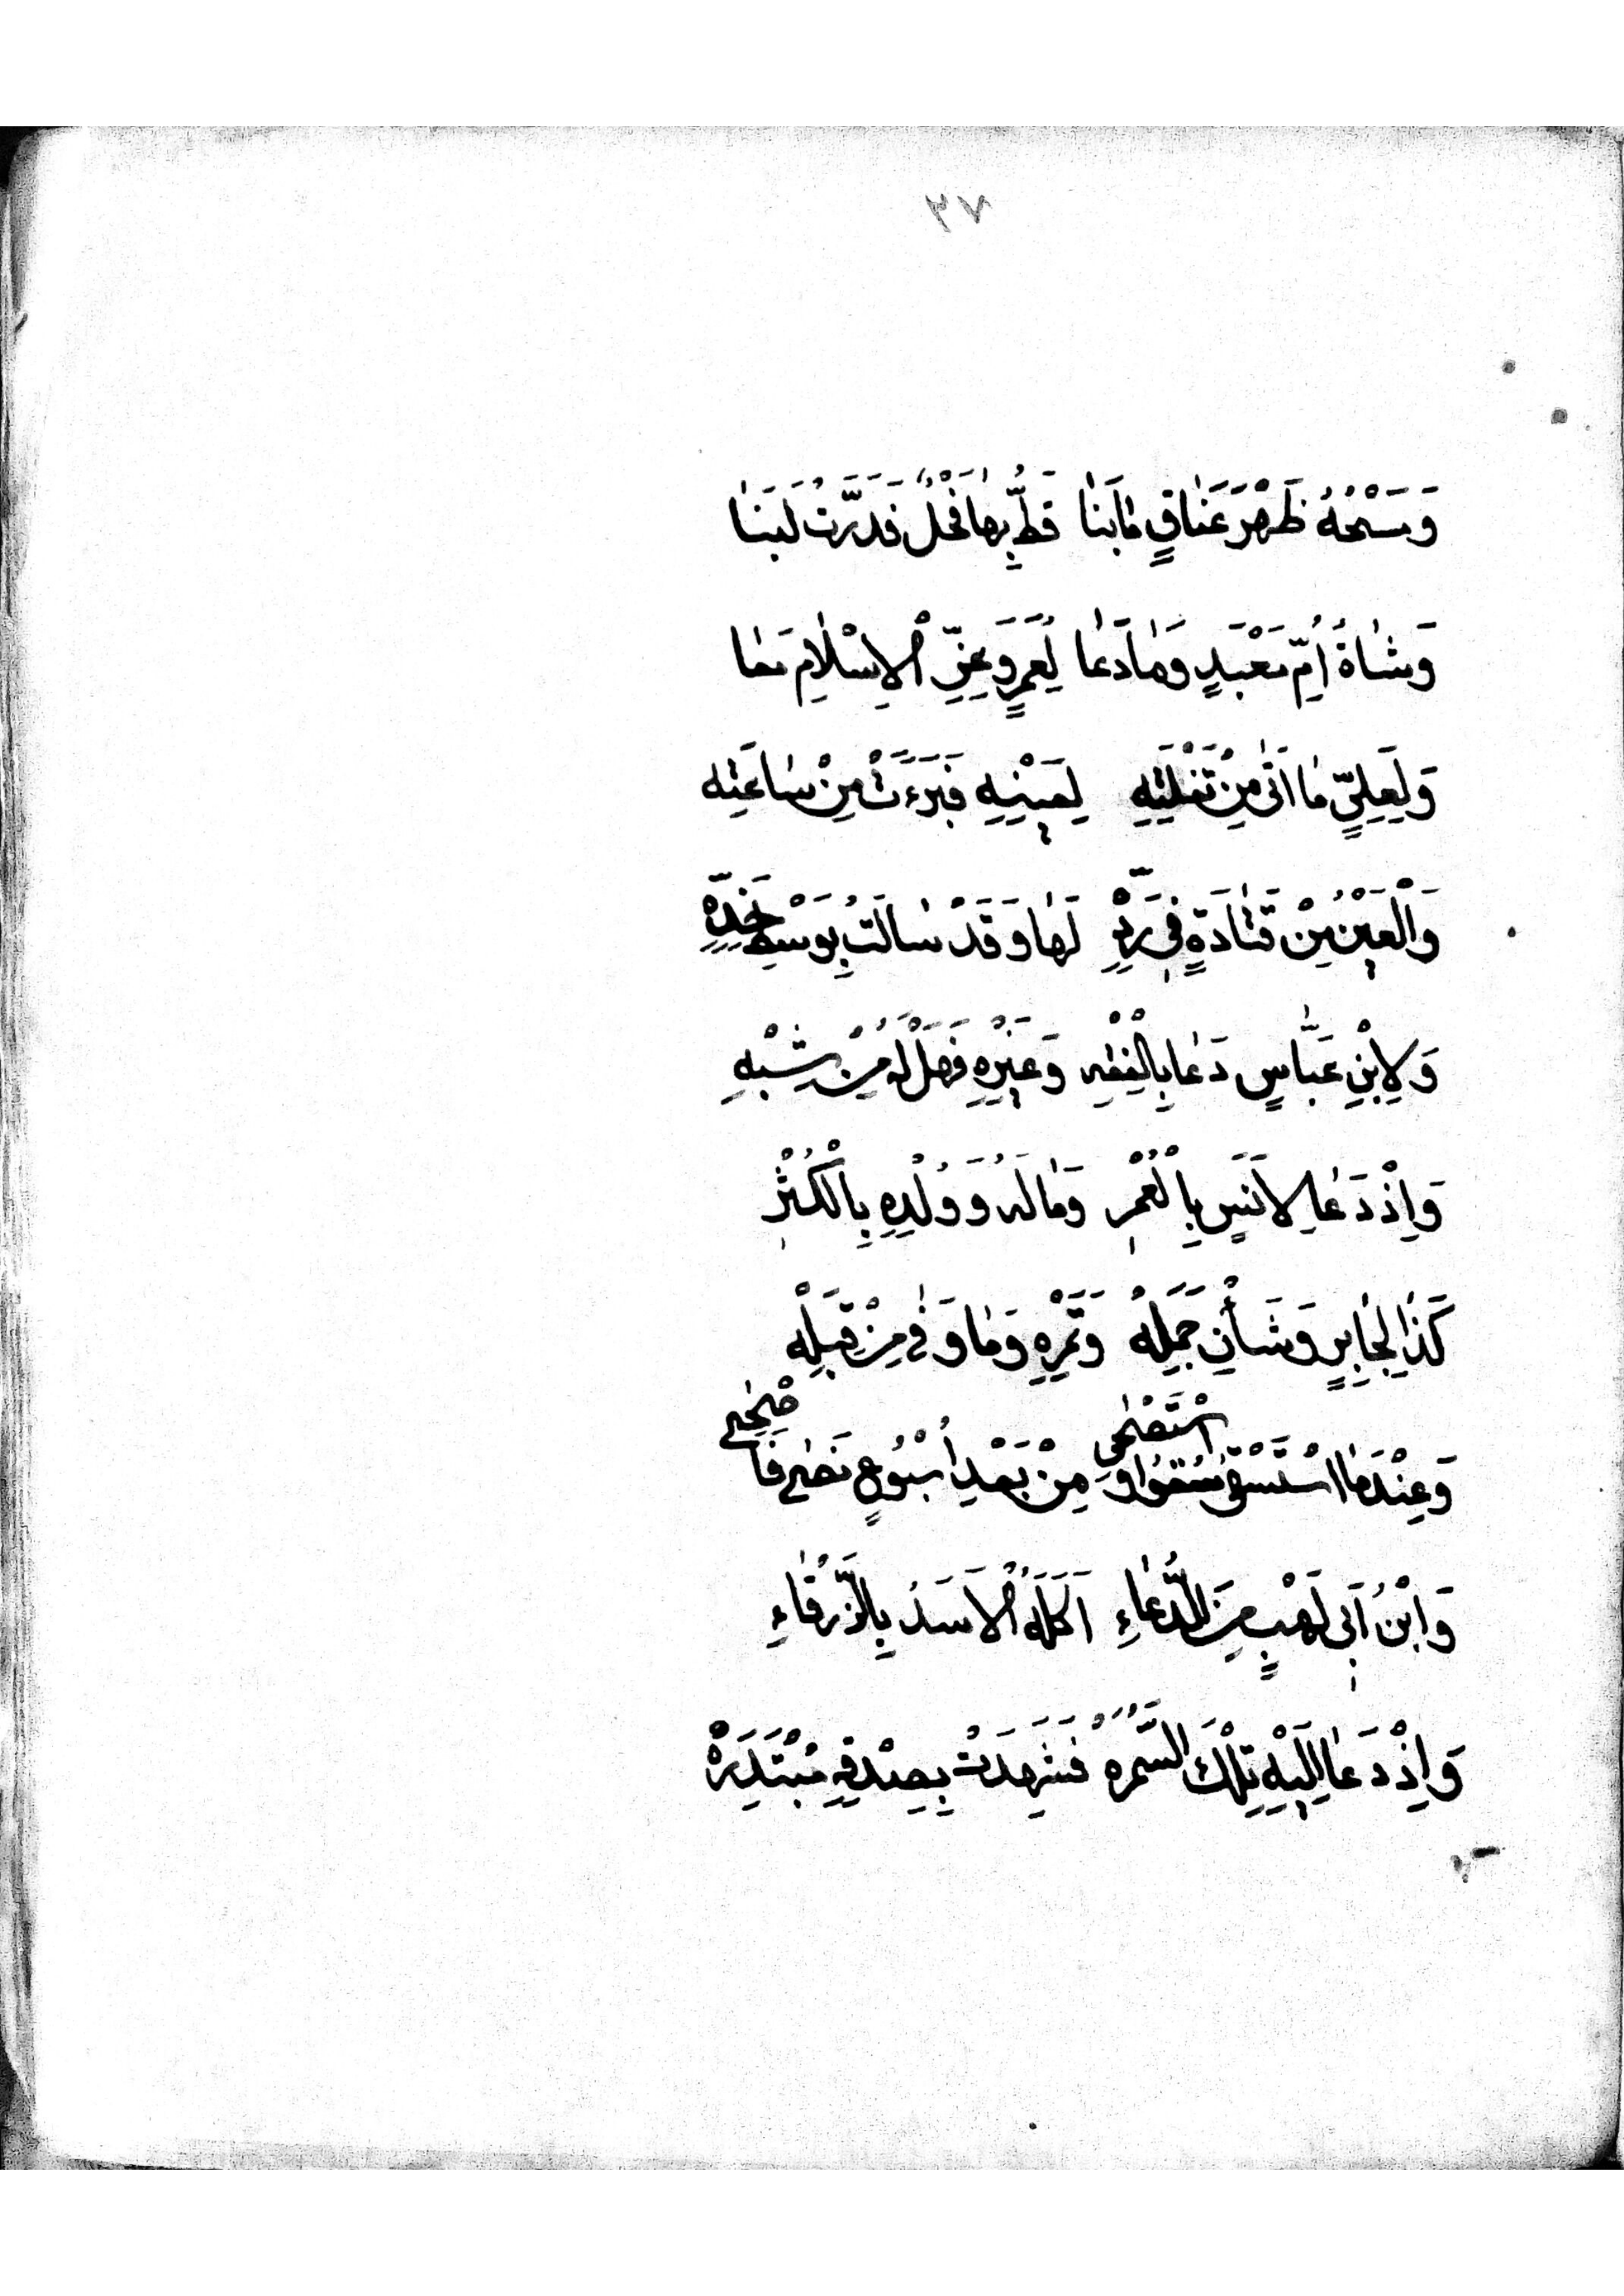 ٣٧
وَمَسْحُهُ ظَهْرَ عَنَاقٍ مَا بَنَا قَطُّ بِهَا فَحْلٌ فَدَرَّتْ لَبَنَا
وَشَاةُ أُمِّ مَعْبَدٍ وَمَا دَعَا لِعُمَرٍ وَعِزِّ الْإِسْلَامِ مَعَا
وَلِعَلِيٍّ مَا أَتَى مِنْ تَفْلَتِهِ لِعَيْنِهِ فَبَرَءَتْ مِنْ سَاعَتِهِ
وَالْعَيْنُ مِنْ قَتَادَةٍ فِي رَدِّهِ لَهَا وَقَدْ سَالَتْ بِوَسْطِ خَدِّهِ
وَلِابْنِ عَبَّاسٍ دَعَا بِالْفِقْهِ وَغَيْرِهِ فَهَلْ لَهُ مِنْ شِبْهِ
وَإِذْ دَعَا لِأَنَسٍ بِالْعُمْرِ وَمَالَهُ وَوُلْدِهِ بِالْكُثْرِ
كَذَا لِجَابِرٍ وَشَأْنِ جَمَلِهْ وَتَمْرِهِ وَمَا وَفَى مِنْ قِبَلِهْ
وَعِنْدَمَا اسْتَسْقَى سُقُوا وَاسْتَصْحَى مِنْ بَعْدِ أُسْبُوعٍ مَضَى فَأَضْحَى
وَابْنُ أَبِي لَهْبٍ مِنَ الدُّعَاءِ أَكَلَهُ الْأَسَدُ بِالزَّرْقَاءِ
وَإِذْ دَعَا إِلَيْهِ تِلْكَ السَّمُرَهْ فَشَهِدَتْ بِصِدْقِهِ مُبْتَدِرَهْ